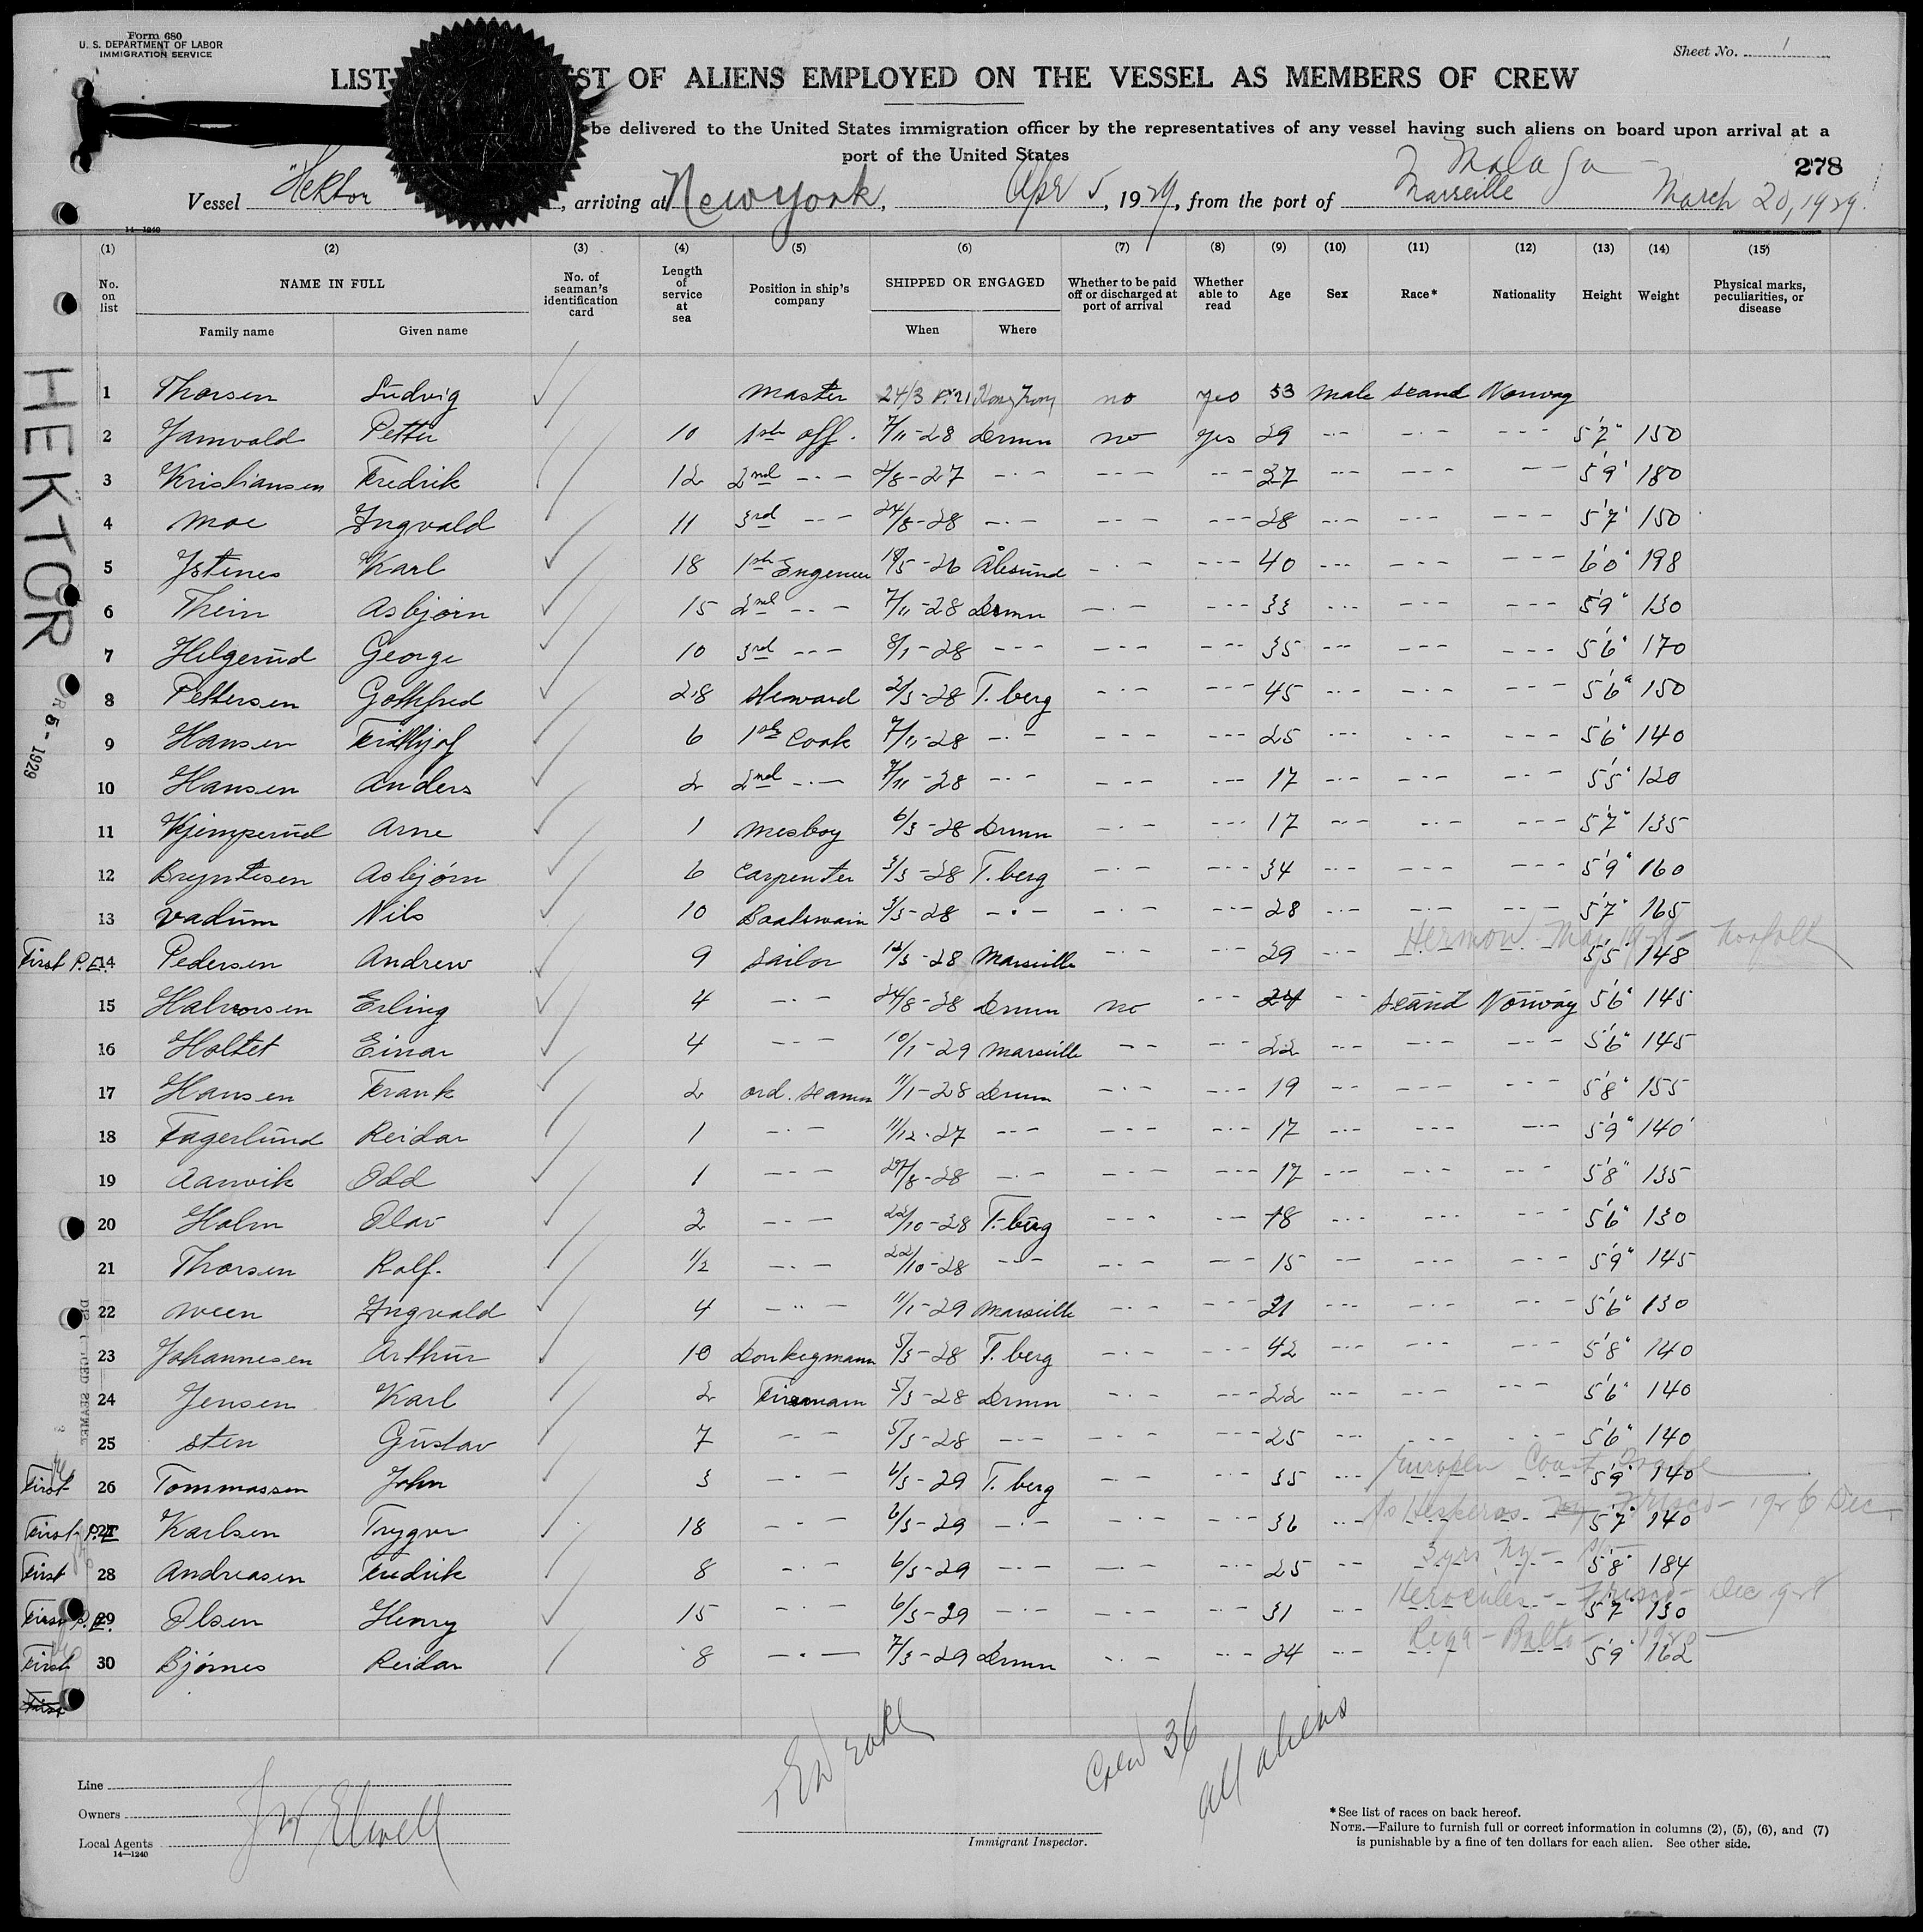 Form 680
U. S. DEPARTMENT OF LABOR
IMMIGRATION SERVICE
Sheet No. 1
LIST ST OF ALIENS EMPLOYED ON THE VESSEL AS MEMBERS OF CREW
be delivered to the United States immigration officer by the representatives of any vessel having such aliens on board upon arrival at a
port of the United States
278
Malaga
Vessel "Hektor , arriving at New York, Apr 5, 1929, from the port of Marseille March 20, 1929.
14—1240
(1) (2) (3) (4) (5) (6) (7) (8) (9) (10) (11) (12) (13) (14) (15)
No. on list NAME IN FULL No. of seaman's identification card Length of service at sea Position in ship's company SHIPPED OR ENGAGED Whether to be paid off or discharged at port of arrival Whether able to read Age Sex Race* Nationality Height Weight Physical marks, peculiarities, or disease
Family name Given name When Where
HEKTOR
5-1929
1 Thorsen Ludvig Master 24/3 Hong Kong no yes 53 male scand Norway
2 Jamvold Petter 10 1st off. 7/11-28 Drmn no yes 29 -·- -·- --- 5'7" 150
3 Kristiansen Fredrik 12 2nd -·- 2/8-27 -·- --- --- 27 --- --- -- 5'9' 180
4 Moe Ingvald 11 3rd -·- 24/8-28 -·- --- --- 28 -·- --- --- 5'7' 150
5 Ystenes Karl 18 1st Engeneer 18/5-26 Ålesund -·- --- 40 --- --- --- 6'0" 198
6 Thein Asbjørn 15 2nd -·- 7/11-28 Drmn -·- --- 33 --- --- --- 5'9" 130
7 Helgerud George 10 3rd --- 8/1-28 --- --- --- 35 --- --- --- 5'6" 170
8 Pettersen Gottfred 28 Steward 2/3-28 T.berg -·- --- 45 --- -·- --- 5'6" 150
9 Hansen Fridthjof 6 1st Cook 7/11-28 -·- --- --- 25 --- -·- --- 5'6" 140
10 Hansen Anders 2 2nd -·- 7/11-28 -·- --- --- 17 -·- --- -·- 5'5" 120
11 Kjemperud Arne 1 Mesboy 6/3-28 Drmn -·- --- 17 -·- -·- --- 5'7" 135
12 Bryntesen Asbjørn 6 Carpenter 3/3-28 T.berg -·- --- 34 -·- --- --- 5'9" 160
13 Vadum Nils 10 Boatswain 3/3-28 -·- -·- --- 28 -·- -·- --- 5'7" 165
Hermon May Norfolk
First P.E. 14 Pedersen Andrew 9 Sailor 12/3-28 Marseille -·- --- 29 -·- -·- -·- 5'5" 148
15 Halvorsen Erling 4 -·- 24/8-28 Drmn no --- 24 -- scand Norway 5'6" 145
16 Holtet Einar 4 --- 10/1-29 Marseille -- -·- 22 -·- -·- --- 5'6" 145
17 Hansen Frank 2 ord. seaman 11/1-28 Drmn -·- -·- 19 -- --- --- 5'8" 155
18 Fagerlund Reidar 1 -·- 11/12-27 --- --- -·- 17 -·- --- -·- 5'9" 140
19 Aanvik Odd 1 -·- 29/8-28 -·- -·- --- 17 -·- --- --- 5'8" 135
20 Holm Olav 2 -·- 22/10-28 T.berg -·- -- 18 --- --- --- 5'6" 130
21 Thorsen Rolf. 1/2 -·- 22/10-28 --- -·- -- 15 -- -·- --- 5'9" 145
22 Ween Ingvald 4 -·- 11/1-29 Marseille -·- --- 21 --- -·- --- 5'6" 130
23 Johannesen Arthur 10 Donkeymann 5/3-28 T.berg -·- --- 42 --- --- --- 5'8" 140
24 Jensen Karl 2 Firemann 5/3-28 Drmn -·- --- 22 --- -·- --- 5'6" 140
25 Sten Gustav 7 -- 5/3-28 --- --- --- 25 --- --- --- 5'6" 140
European Coast
First 26 Tommassen John 3 -·- 6/3-29 T.berg -·- -- 35 --- 5'9" 140
Hesperos Frisco - 1926 Dec
First P.E. 27 Karlsen Trygve 18 -·- 6/3-29 -·- -·- -·- 36 --- 5'7" 140
3 yrs
First 28 Andreasen Fredrik 8 -·- 6/3-29 -·- -·- -·- 25 -- 5'8" 184
Hercules - Frisco - Dec 1928
First P.E. 29 Olsen Henry 15 -·- 6/3-29 -·- --- -·- 31 -- 5'7" 130
Balto
First 30 Bjørnes Reidar 8 -·- 7/3-29 Drmn -·- -·- 24 -·- 5'9" 162
First
Crew 36
all aliens
Line
Owners
Local Agents J W Elwell
14—1240
Immigrant Inspector.
* See list of races on back hereof.
NOTE.—Failure to furnish full or correct information in columns (2), (5), (6), and (7)
is punishable by a fine of ten dollars for each alien. See other side.